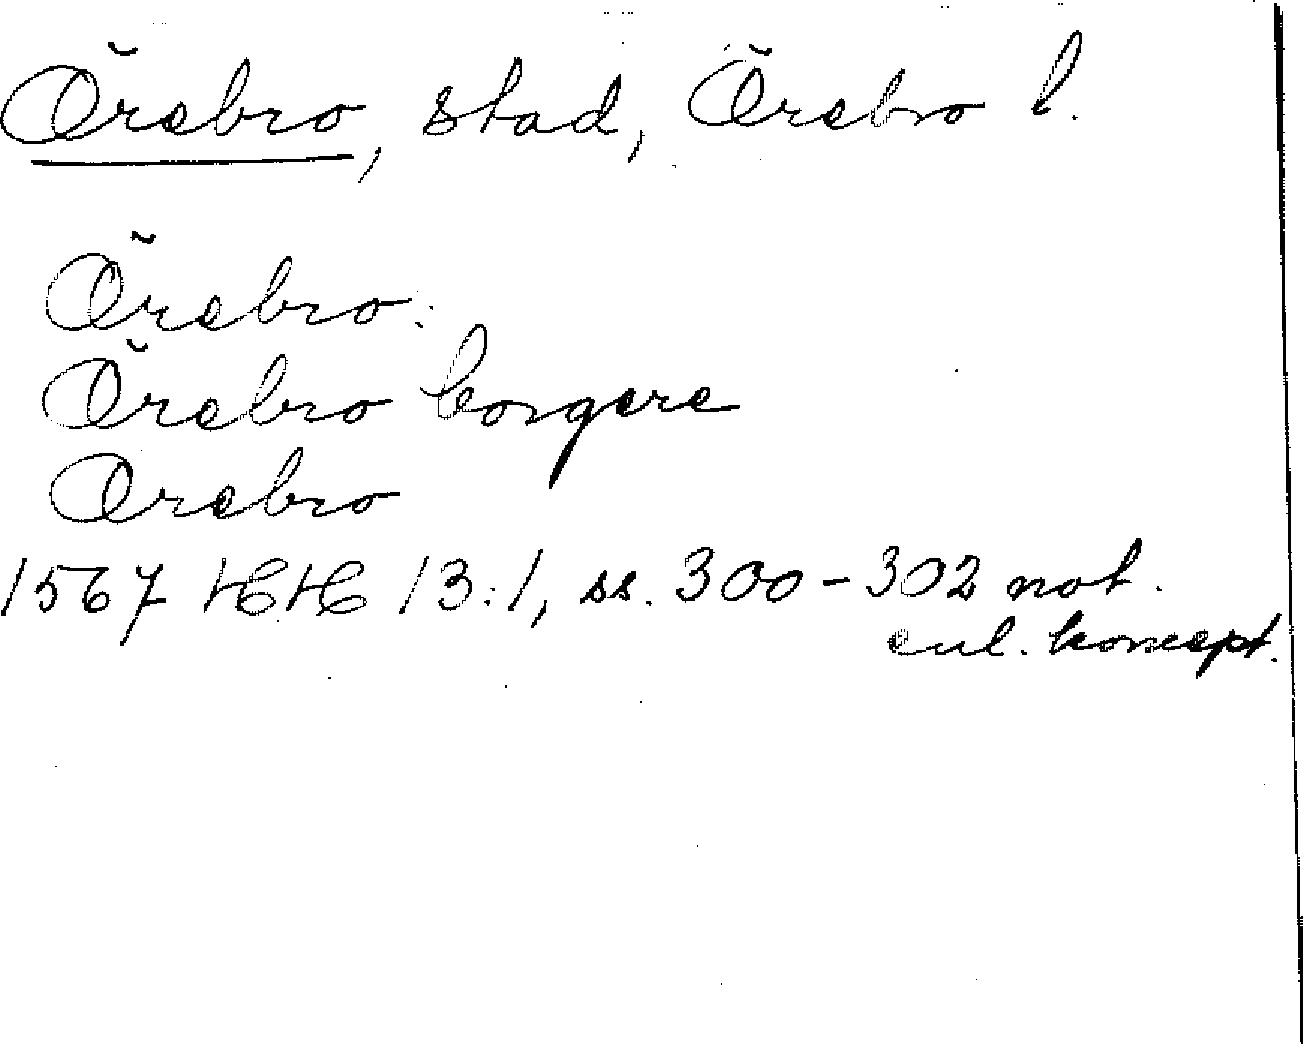 Örebro, stad, Örebro l.
Örebro:
Örebro borgere
Orebro
1567 HH 13:1, ss. 300-302 not.
enl. koncept.